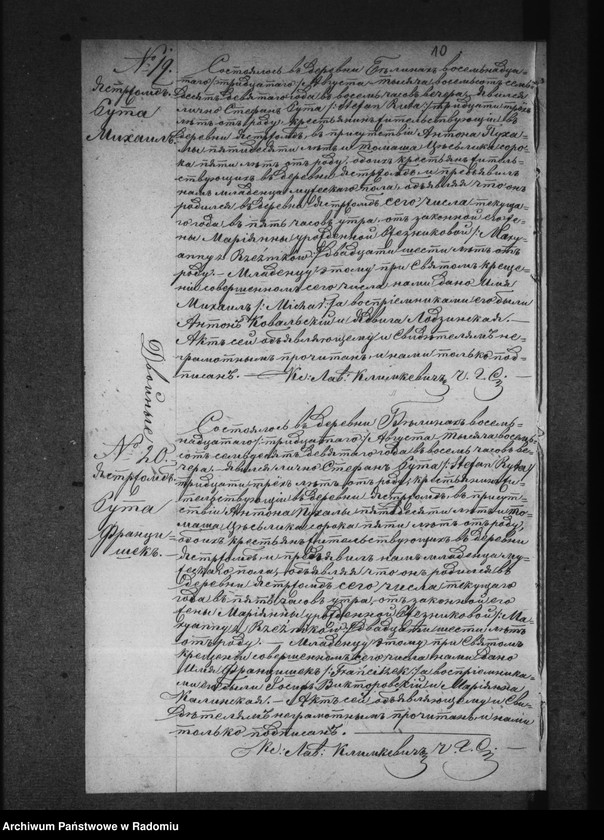 10
№ 19.
Ястржомб.
Рута
Михаилъ.
Состоялось въ деревни Бѣлинахъ восемнадца-
таго /:тридцатаго:/ Августа тысяча восемьсотъ семь-
десятъ девятаго года въ восемь часовъ вечера. Явился
лично Стефанъ Рута /: Stefan Ruta:/ тридцати трехъ
лѣтъ отъ роду крестьянинъ жительствующій въ
деревни Ястржомбъ, въ присутствіи Антона Пуха-
лы пятидесяти лѣтъ и Томаша Цѣсьлика соро-
ка пяти лѣтъ отъ роду, обоихъ крестьянъ житель-
ствующихъ въ деревни Ястржомбъ и предъявилъ
намъ младенца мужескаго пола, объявляя что онъ
родился въ деревни Ястржомбъ сего числа текуща-
го года въ пять часовъ утра, отъ законной его же-
ны Маріянны урожденной /: Mary-
anny z :/ двадцати шести лѣтъ отъ
роду. — Младенцу этому при Святомъ креще-
ніи совершенномъ сего числа нами дано имя
Михаилъ /: Michał:/ а воспріемниками его были
Антонъ Ковальскій и Ядвига —
Актъ сей объявляющему и свидѣтелямъ не-
грамотнымъ прочитанъ и нами только под-
писанъ. — Кс: Лав: Климкевичъ Ч. Г. С.
Двойные
№ 20.
Ястржомбъ.
Рута
Франци-
шекъ.
Состоялось въ деревни Бѣлинахъ восем-
надцатаго /:тридцатаго:/ Августа тысяча восемь-
сотъ семьдесятъ девятаго года въ восемь часовъ ве-
чера, явился лично Стефанъ Рута /: Stefan Ruta:/
тридцати трехъ лѣтъ отъ роду, крестьянинъ жи-
тельствующій въ деревни Ястржомбъ въ присут-
ствіи Антона Пухалы пятидесяти лѣтъ и То-
маша Цѣсьлика сорока пяти лѣтъ отъ роду,
обоихъ крестьянъ жительствующихъ въ деревни
Ястржомбъ и предъявилъ намъ младенца му-
жескаго пола, объявляя что онъ родился въ
деревни Ястржомбъ сего числа текущаго
года въ пять часовъ утра, отъ законной его
жены Маріянны урожденной /: Ma-
ryanny z :/ двадцати шести лѣтъ
отъ роду. — Младенцу этому при Святомъ
крещеніи совершенномъ сего числа нами дано
имя Францишекъ /: Franciszek:/ а воспріемника-
ми его были Іосифъ Викторовскій и Маріянна
Калинская. — Актъ сей объявляющему и сви-
дѣтелямъ неграмотнымъ прочитанъ и нами
только подписанъ. —
Кс: Лав: Климкевичъ Ч. Г. С. —
Archiwum Państwowe w Radomiu